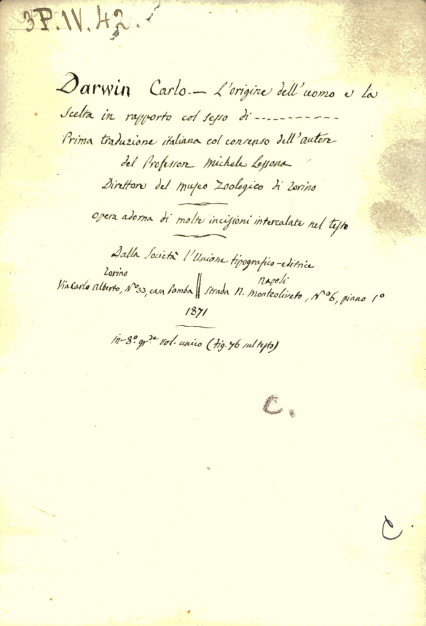 3P.IV.42.
Darwin Carlo. — L'origine dell'uomo e la
scelta in rapporto col sesso di ----------
Prima traduzione italiana col consenso dell'autore
del Professor Michele Lessona
Direttore del Museo Zoologico di Torino
opera adorna di molte incisioni intercalate nel testo
Dalla Società l'Unione tipografico-editrice
Torino
Napoli
Via Carlo Alberto, N° 33, casa Pomba || Strada M. Monteoliveto, N° 6, piano 1°
1871
in 8° gr.de vol. unico (fig. 76 sul testo)
C.
C